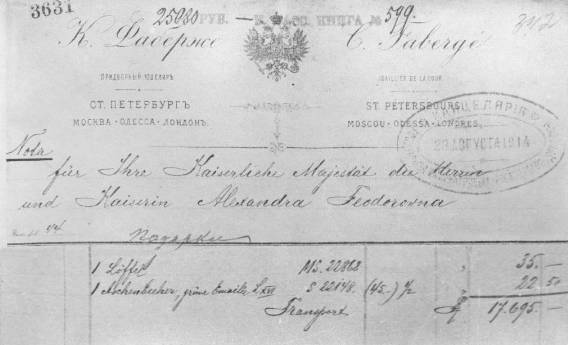 3631
25080 РУБ. КАСС. КНИГА № 599
К. Фаберже C. Fabergé
ПРИДВОРНЫЙ ЮВЕЛИРЪ JOAILLIER DE LA COUR
СТ. ПЕТЕРБУРГЪ ST. PETERSBOURG
МОСКВА - ОДЕССА - ЛОНДОНЪ. MOSCOU - ODESSA - LONDRES.
28 АВГУСТА 1914
Nota
für Ihre Kaiserliche Majestät die Herrin
und Kaiserin Alexandra Feodorovna
подарки
1 Löffel № 22862 35.-
1 Aschenbecher, grüne Emaille L. XVI S 22148. (45-) ½ 22 50
Transport 17.695.-